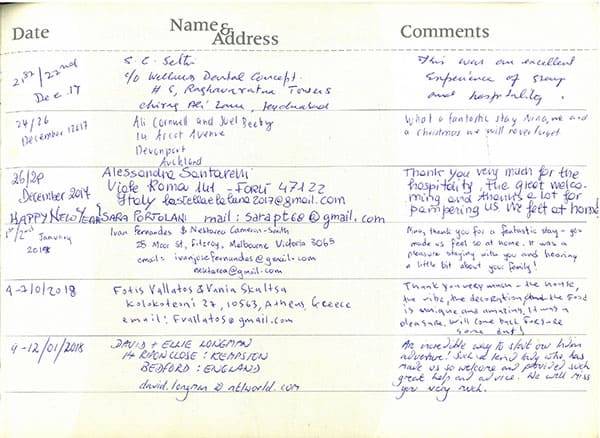 Date
Name & Address
Comments
21st/22nd
Dec. 17
S. C. Sethi
c/o Wellness Dental Concept.
H 5, Raghavaratna Towers
Chirag Ali Lane, Hyderabad
This was an excellent
Experience of
and hospitality.
24/26
December 2017
Ali Cornwell and Joel Beeby
14 Ascot Avenue
Devonport
Auckland
What a fantastic stay Nina, and
a christmas we will never forget.
26/28
December 2017
HAPPY NEW YEAR
Alessandra Santarelli
Viale Roma 141 - Forlì 47122
Italy lastellaelaluna2017@gmail.com
SARA PORTOLANI mail: sarapt68@gmail.com
Thank you very much for the
hospitality, the great welco-
ming and thanks a lot for
pampering us. We felt at home!
1st/2nd January
2018
Ivan Fernandes & Nektarea Cameron-Smith
28 Moor St, Fitzroy, Melbourne Victoria 3065
email: ivanjosefernandes@gmail.com
nektarea@gmail.com
thank you for a fantastic stay - you
made us feel so at home. It was a
pleasure staying with you and hearing
a little bit about your family!
4-7/01/2018
Fotis Vallatos & Vania Skaltsa
Kolokotroni 27, 10563, Athens, Greece
email: Fvallatos@gmail.com
Thank you very much - the house,
the vibe, the decoration and the food
is unique and amazing, it was a
pleasure. Will come back for sure
some day!
9-12/01/2018
DAVID + ELLIE LONGMAN
14 RIPON CLOSE: KEMPSTON
BEDFORD: ENGLAND
david.longman@ntlworld.com
An incredible way to start our
adventure! Such a kind lady who has
made us so welcome and provided such
great help and advice. We will miss
you very much.